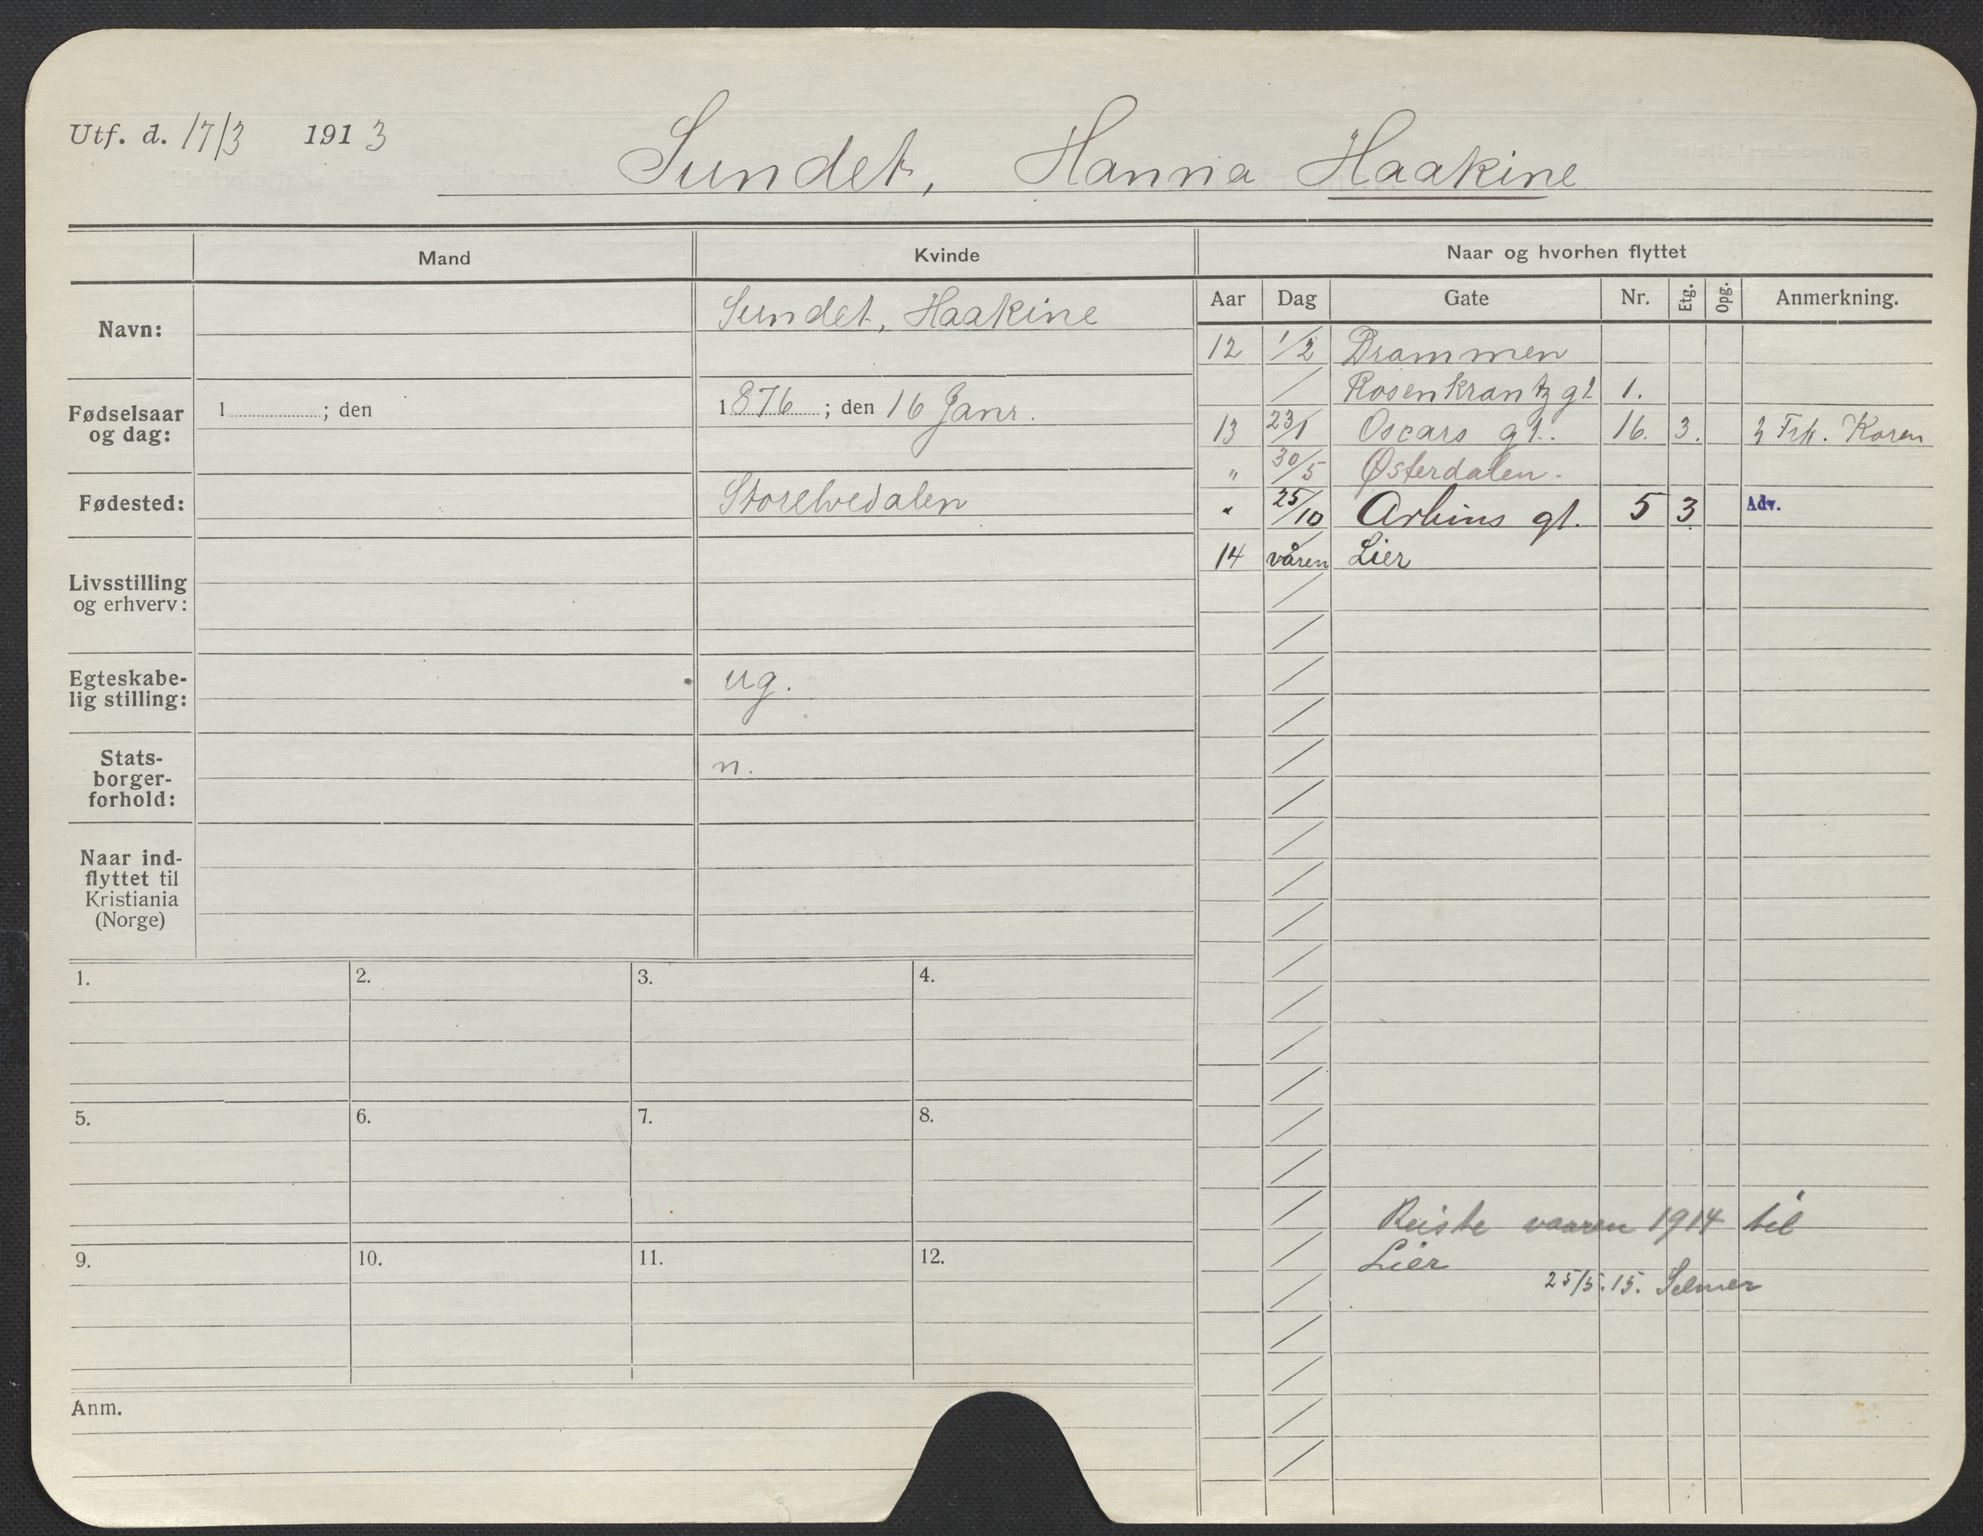 Utf. d. 17/3 1913
Sundet, Hanna Haakine
Mand
Kvinde
Naar og hvorhen flyttet
Navn:
Sundet, Haakine
Fødselsaar og dag:
1 ; den
1876 ; den 16 Janr.
Fødested:
Storelvedalen
Livsstilling og erhverv:
Egteskabe-
lig stilling:
ug.
Stats-
borger-
forhold:
n.
Naar ind-
flyttet til
Kristiania
(Norge)
Aar Dag Gate Nr. Etg. Opg. Anmerkning.
12 1/2 Drammen
Rosenkrantz gt 1.
13 23/1 Oscars gt. 16. 3. Frk. Koren
" 30/5 Østerdalen.
" 25/10 Arbins gt. 5 3 Adv.
14 våren Lier
1. 2. 3. 4.
5. 6. 7. 8.
9. 10. 11. 12.
Reiste vaaren 1914 til
Lier
25/5.15. Selmer
Anm.